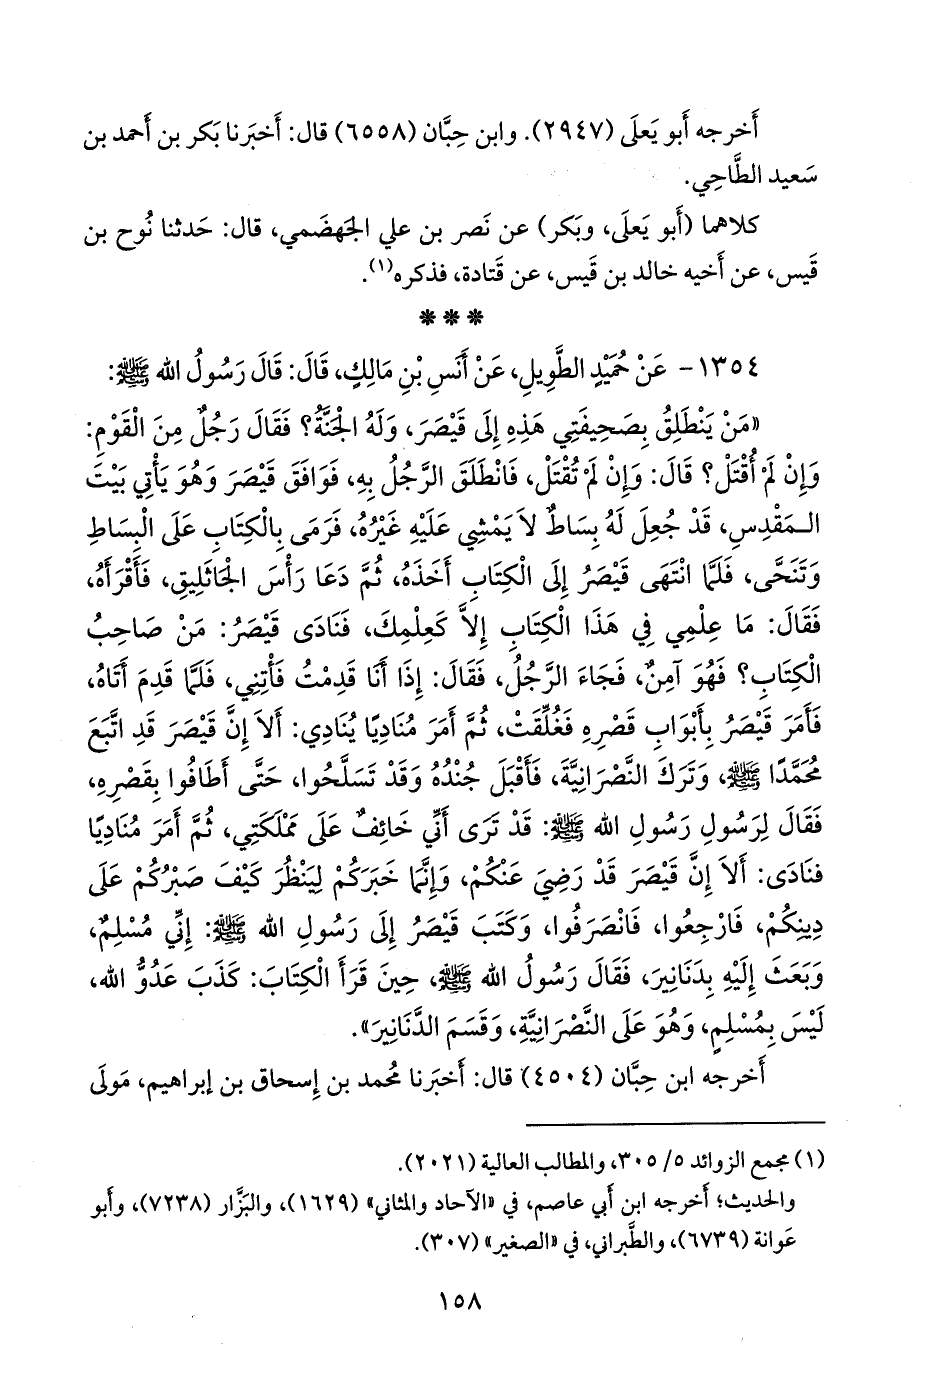 أَخرجه أَبو يَعلَى (٢٩٤٧). وابن حِبَّان (٦٥٥٨) قال: أَخبَرنا بَكر بن أَحمد بن
سَعيد الطَّاحِي.
كلاهما (أَبو يَعلَى، وبَكر) عن نَصر بن علي الجَهضَمي، قال: حَدثنا نُوح بن
قَيس، عن أَخيه خالد بن قَيس، عن قَتادة، فذكره(١).
***
١٣٥٤- عَنْ حُمَيْدٍ الطَّوِيلِ، عَنْ أَنَسِ بْنِ مَالِكٍ، قَالَ: قَالَ رَسُولُ الله ﷺ:
«مَنْ يَنْطَلِقُ بِصَحِيفَتِي هَذِهِ إِلَى قَيْصَرَ، وَلَهُ الجَنَّةُ؟ فَقَالَ رَجُلٌ مِنَ الْقَوْمِ:
وَإِنْ لَمْ أُقْتَلْ؟ قَالَ: وَإِنْ لَمْ تُقْتَلْ، فَانْطَلَقَ الرَّجُلُ بِهِ، فَوَافَقَ قَيْصَرَ وَهُوَ يَأْتِي بَيْتَ
الـمَقْدِسِ، قَدْ جُعِلَ لَهُ بِسَاطٌ لاَ يَمْشِي عَلَيْهِ غَيْرُهُ، فَرَمَى بِالْكِتَابِ عَلَى الْبِسَاطِ
وَتَنَحَّى، فَلَمَّا انْتَهَى قَيْصَرُ إِلَى الْكِتَابِ أَخَذَهُ، ثُمَّ دَعَا رَأْسَ الجَاثَلِيقِ، فَأَقْرَأَهُ،
فَقَالَ: مَا عِلْمِي فِي هَذَا الْكِتَابِ إِلاَّ كَعِلْمِكَ، فَنَادَى قَيْصَرُ: مَنْ صَاحِبُ
الْكِتَابِ؟ فَهُوَ آمِنٌ، فَجَاءَ الرَّجُلُ، فَقَالَ: إِذَا أَنَا قَدِمْتُ فَأْتِنِي، فَلَمَّا قَدِمَ أَتَاهُ،
فَأَمَرَ قَيْصَرُ بِأَبْوَابِ قَصْرِهِ فَغُلِّقَتْ، ثُمَّ أَمَرَ مُنَادِيًا يُنَادِي: أَلاَ إِنَّ قَيْصَرَ قَدِ اتَّبَعَ
مُحَمَّدًا ﷺ، وَتَرَكَ النَّصْرَانِيَّةَ، فَأَقْبَلَ جُنْدُهُ وَقَدْ تَسَلَّحُوا، حَتَّى أَطَافُوا بِقَصْرِهِ،
فَقَالَ لِرَسُولِ رَسُولِ الله ﷺ: قَدْ تَرَى أَنِّي خَائِفٌ عَلَى مَمْلَكَتِي، ثُمَّ أَمَرَ مُنَادِيًا
فنَادَى: أَلاَ إِنَّ قَيْصَرَ قَدْ رَضِيَ عَنْكُمْ، وَإِنَّمَا خَبَرَكُمْ لِيَنْظُرَ كَيْفَ صَبْرُكُمْ عَلَى
دِينِكُمْ، فَارْجِعُوا، فَانْصَرَفُوا، وَكَتَبَ قَيْصَرُ إِلَى رَسُولِ الله ﷺ: إِنِّي مُسْلِمٌ،
وَبَعَثَ إِلَيْهِ بِدَنَانِيرَ، فَقَالَ رَسُولُ الله ﷺ، حِينَ قَرَأَ الْكِتَابَ: كَذَبَ عَدُوُّ الله،
لَيْسَ بِمُسْلِمٍ، وَهُوَ عَلَى النَّصْرَانِيَّةِ، وَقَسَمَ الدَّنَانِيرَ».
أَخرجه ابن حِبَّان (٤٥٠٤) قال: أَخبَرنا مُحمد بن إِسحاق بن إِبراهيم، مَولَى
(١) مجمع الزوائد ٥/ ٣٠٥، والمطالب العالية (٢٠٢١).
والحديث؛ أَخرجه ابن أَبي عاصم، في «الآحاد والمثاني» (١٦٢٩)، والبَزَّار (٧٢٣٨)، وأَبو
عَوانة (٦٧٣٩)، والطَّبراني، في «الصغير» (٣٠٧).
١٥٨